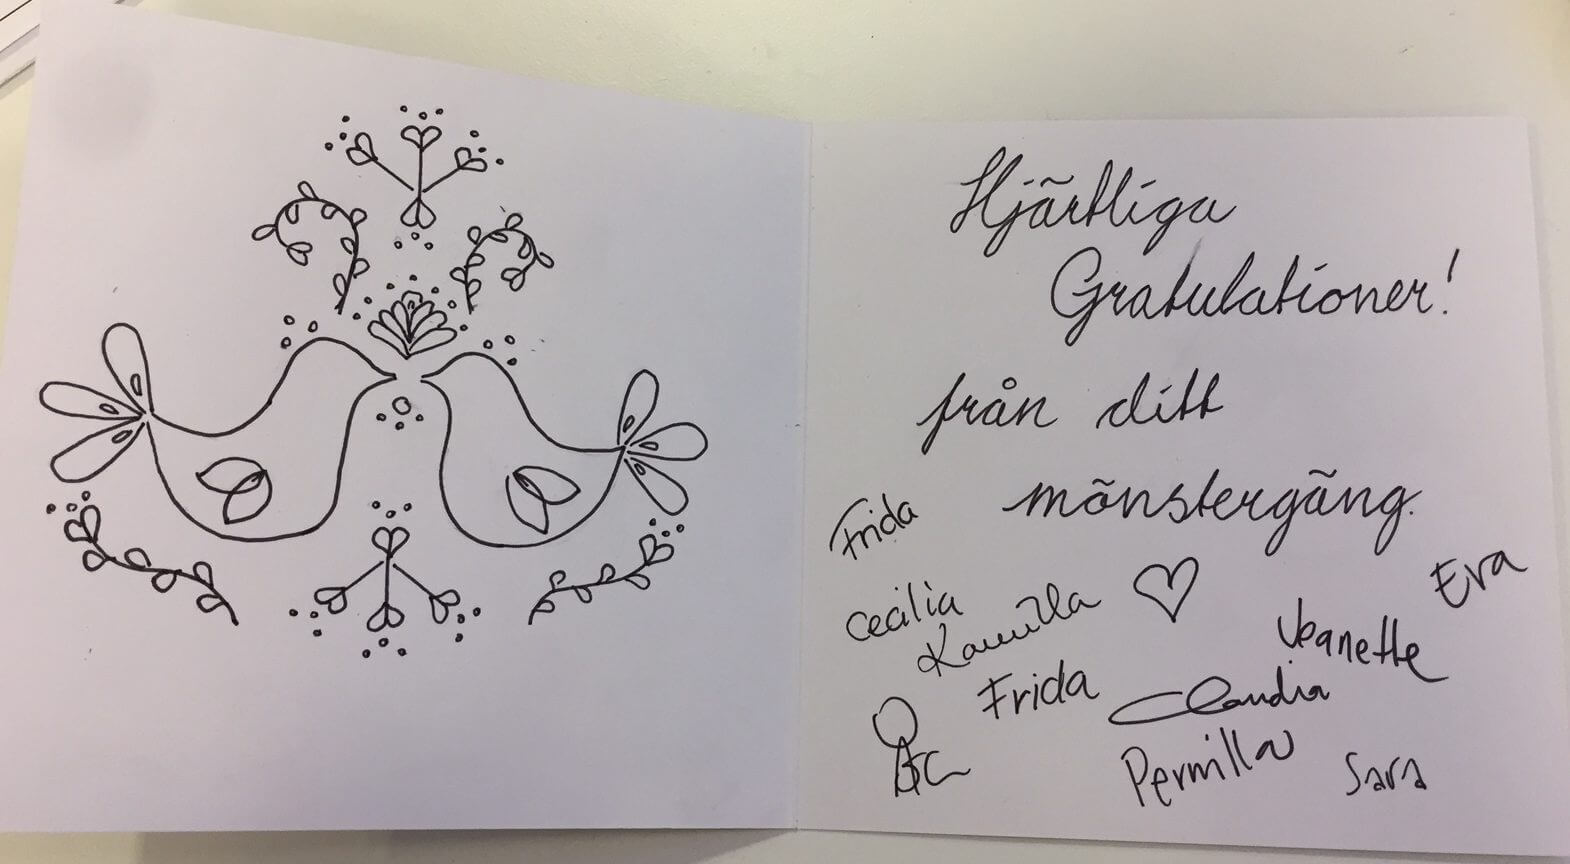 Hjärtliga
Gratulationer!
från ditt
mönstergäng.
Frida
Cecilia
Kamilla
Eva
Jeanette
Frida
Claudia
Pernilla
Sara